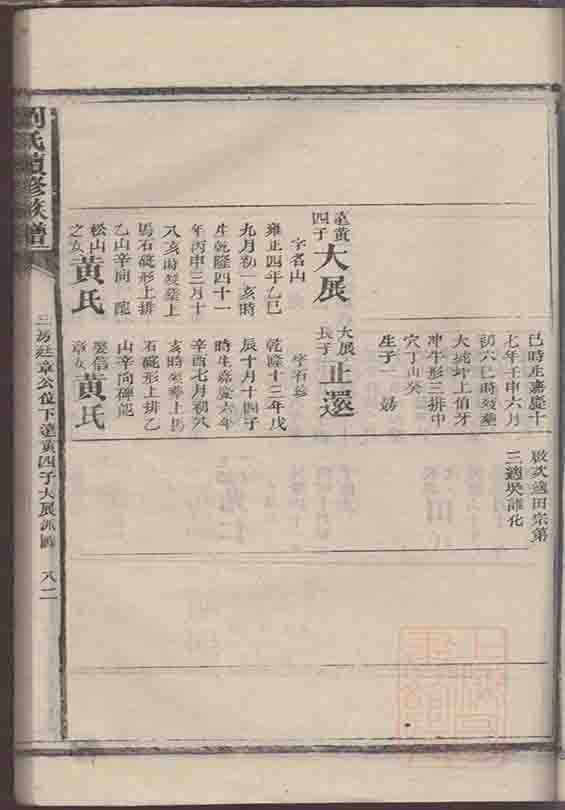 劉氏續修族譜
三房廷章公位下達黃四子大展派圖 八二
達黃四子
大展
字名山
雍正四年乙巳
九月初一亥時
生乾隆四十一
年丙申三月十
八亥時歿葬上
馬石磴形上排
乙山辛向
松山黃氏之女
巳時生嘉慶十
七年壬申六月
初六巳時歿葬
大城坪上伯牙
沖牛形三排中
穴丁山癸
生子一
大展長子
正還
字石
乾隆十二年戊
辰十月十四子
時生嘉慶六年
辛酉七月初八
亥時歿葬上馬
石磴形上排乙
山辛向碑
娶信章女黃氏
啟次適田宗第
三適